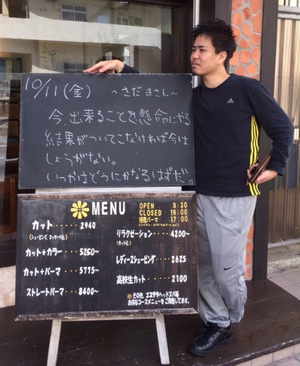 10/11(金)
～さだまさし～
今、出来ることを懸命にやる
結果がついてこなければ今は
しょうがない。
いつかはどうにかなるはずだ。
MENU
OPEN 9:30
CLOSED 19:00
17:00
カット・・・・3940
リラクゼーション・・・・4200〜
カット+カラー・・・5250〜
レディースシェービング・・・2625
カット+パーマ・・・5775〜
高校生カット・・・・2100
ストレートパーマ・・・・8400〜
adidas